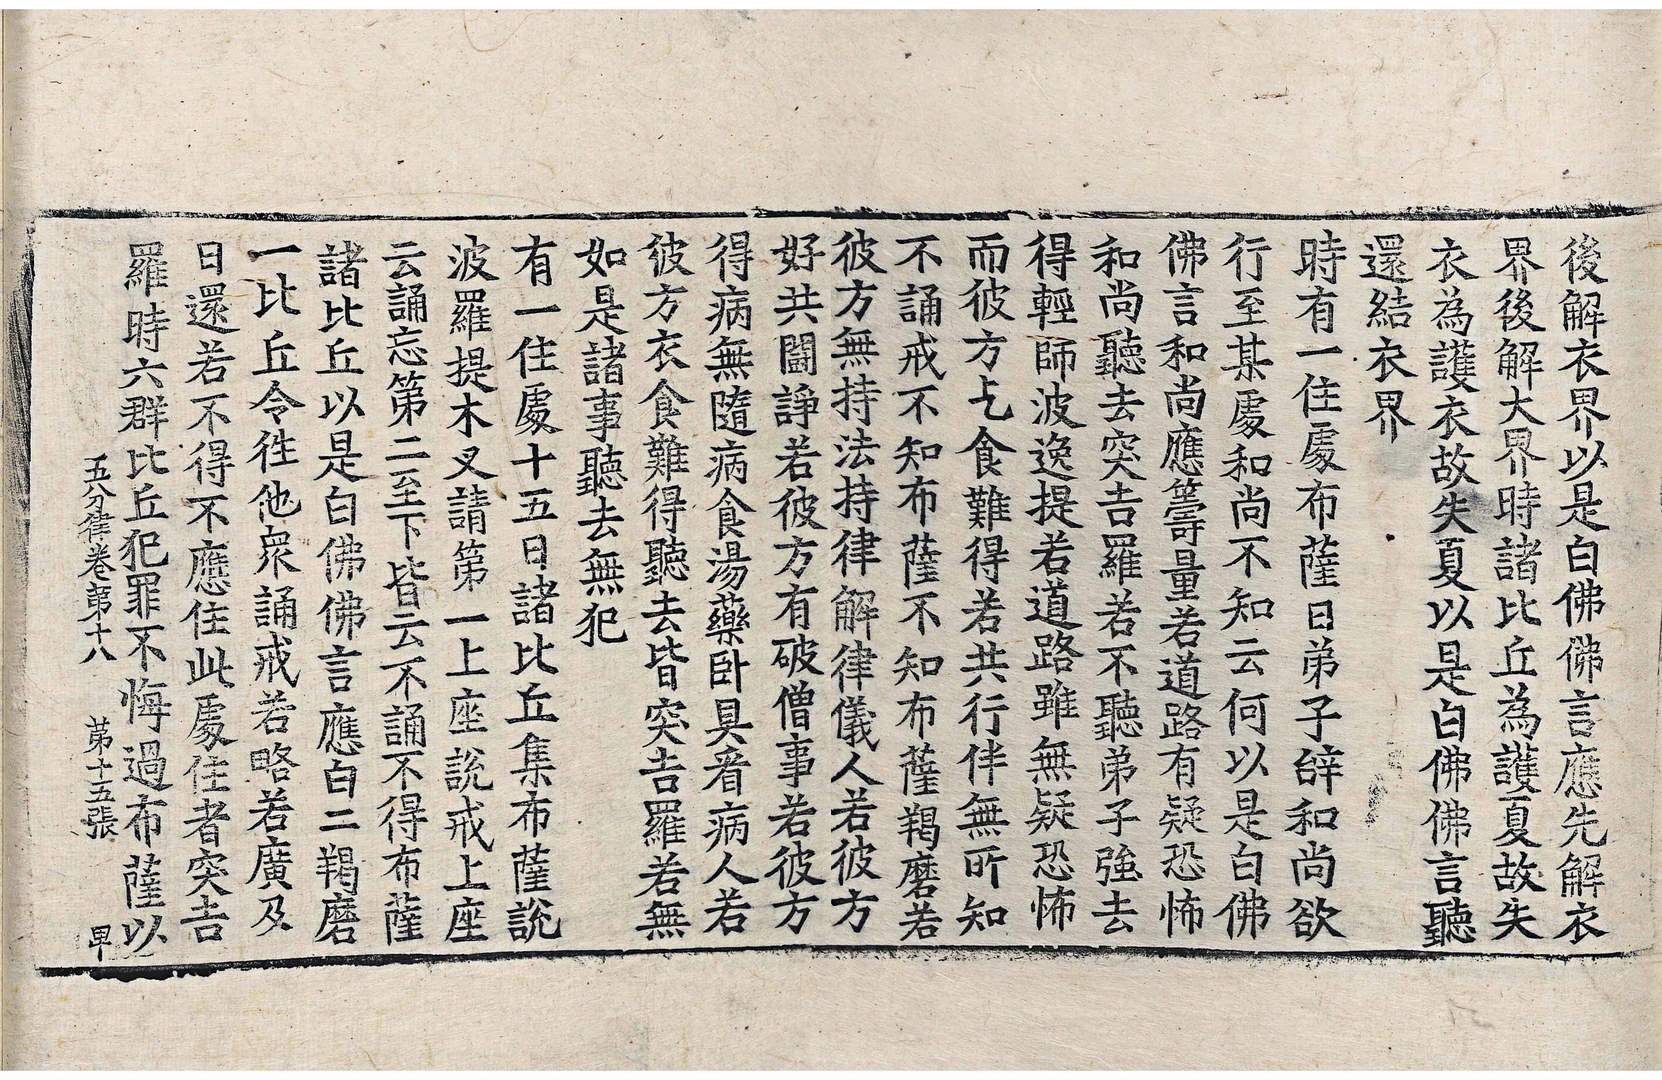 後解衣界以是白佛佛言應先解衣
界後解大界時諸比丘為護夏故失
衣為護衣故失夏以是白佛佛言聽
還結衣界
時有一住處布薩日弟子辭和尚欲
行至某處和尚不知云何以是白佛
佛言和尚應籌量若道路有疑恐怖
和尚聽去突吉羅若不聽弟子強去
得輕師波逸提若道路雖無疑恐怖
而彼方乞食難得若共行伴無所知
不誦戒不知布薩不知布薩羯磨若
彼方無持法持律解律儀人若彼方
好共鬪諍若彼方有破僧事若彼方
得病無隨病食湯藥卧具看病人若
彼方衣食難得聽去皆突吉羅若無
如是諸事聽去無犯
有一住處十五日諸比丘集布薩說
波羅提木叉請第一上座說戒上座
云誦忘第二至下皆云不誦不得布薩
諸比丘以是白佛佛言應白二羯磨
一比丘令往他眾誦戒若略若廣及
日還若不得不應住此處住者突吉
羅時六群比丘犯罪不悔過布薩以
五分律卷第十八 第十五張 甲